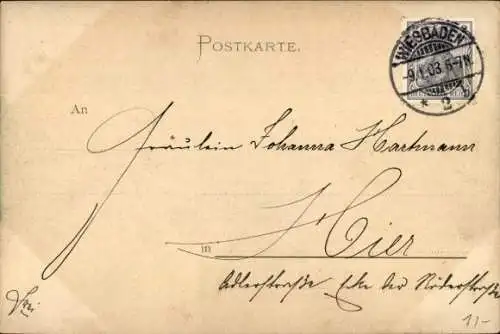 POSTKARTE.
WIESBADEN
-9.1.03 5-7N.
* 2 b
An
Fräulein Johanna Hartmann
in Hier
Adlerstraße, Ecke der Röderstraße
11.-